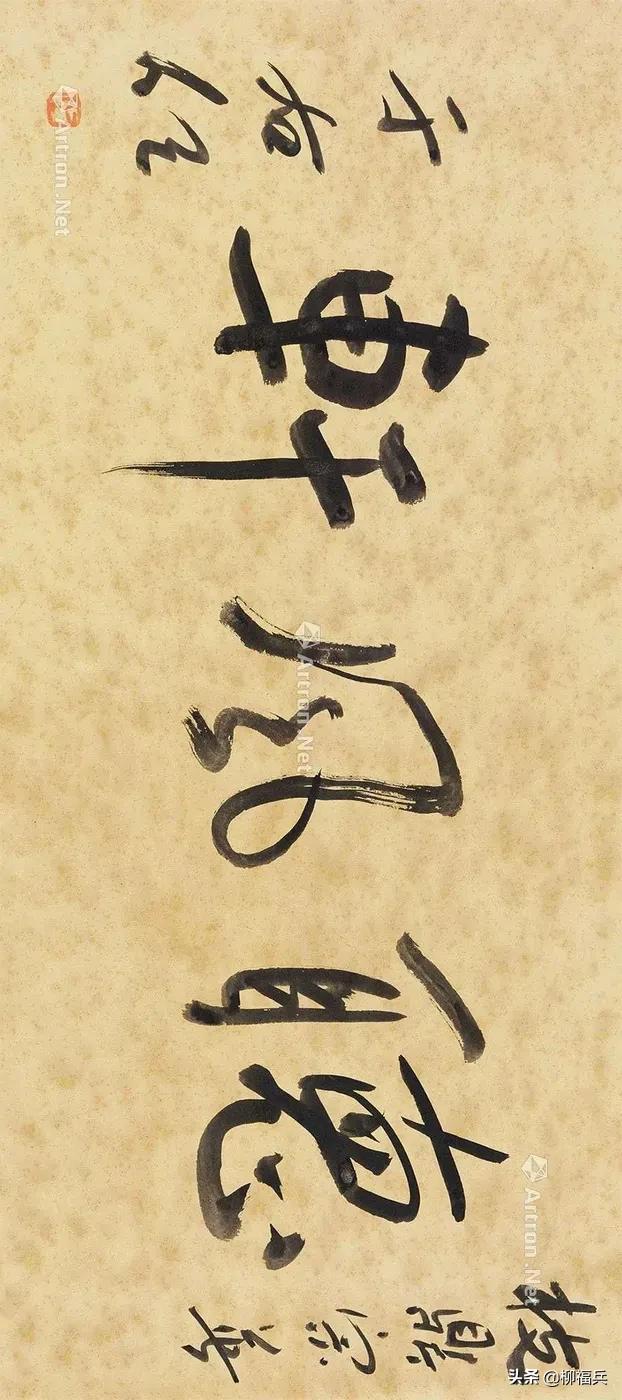 鼎宗
聽風軒
于右任
Artron.Net
Artron.Net
Artron.Net
头条 @柳福兵